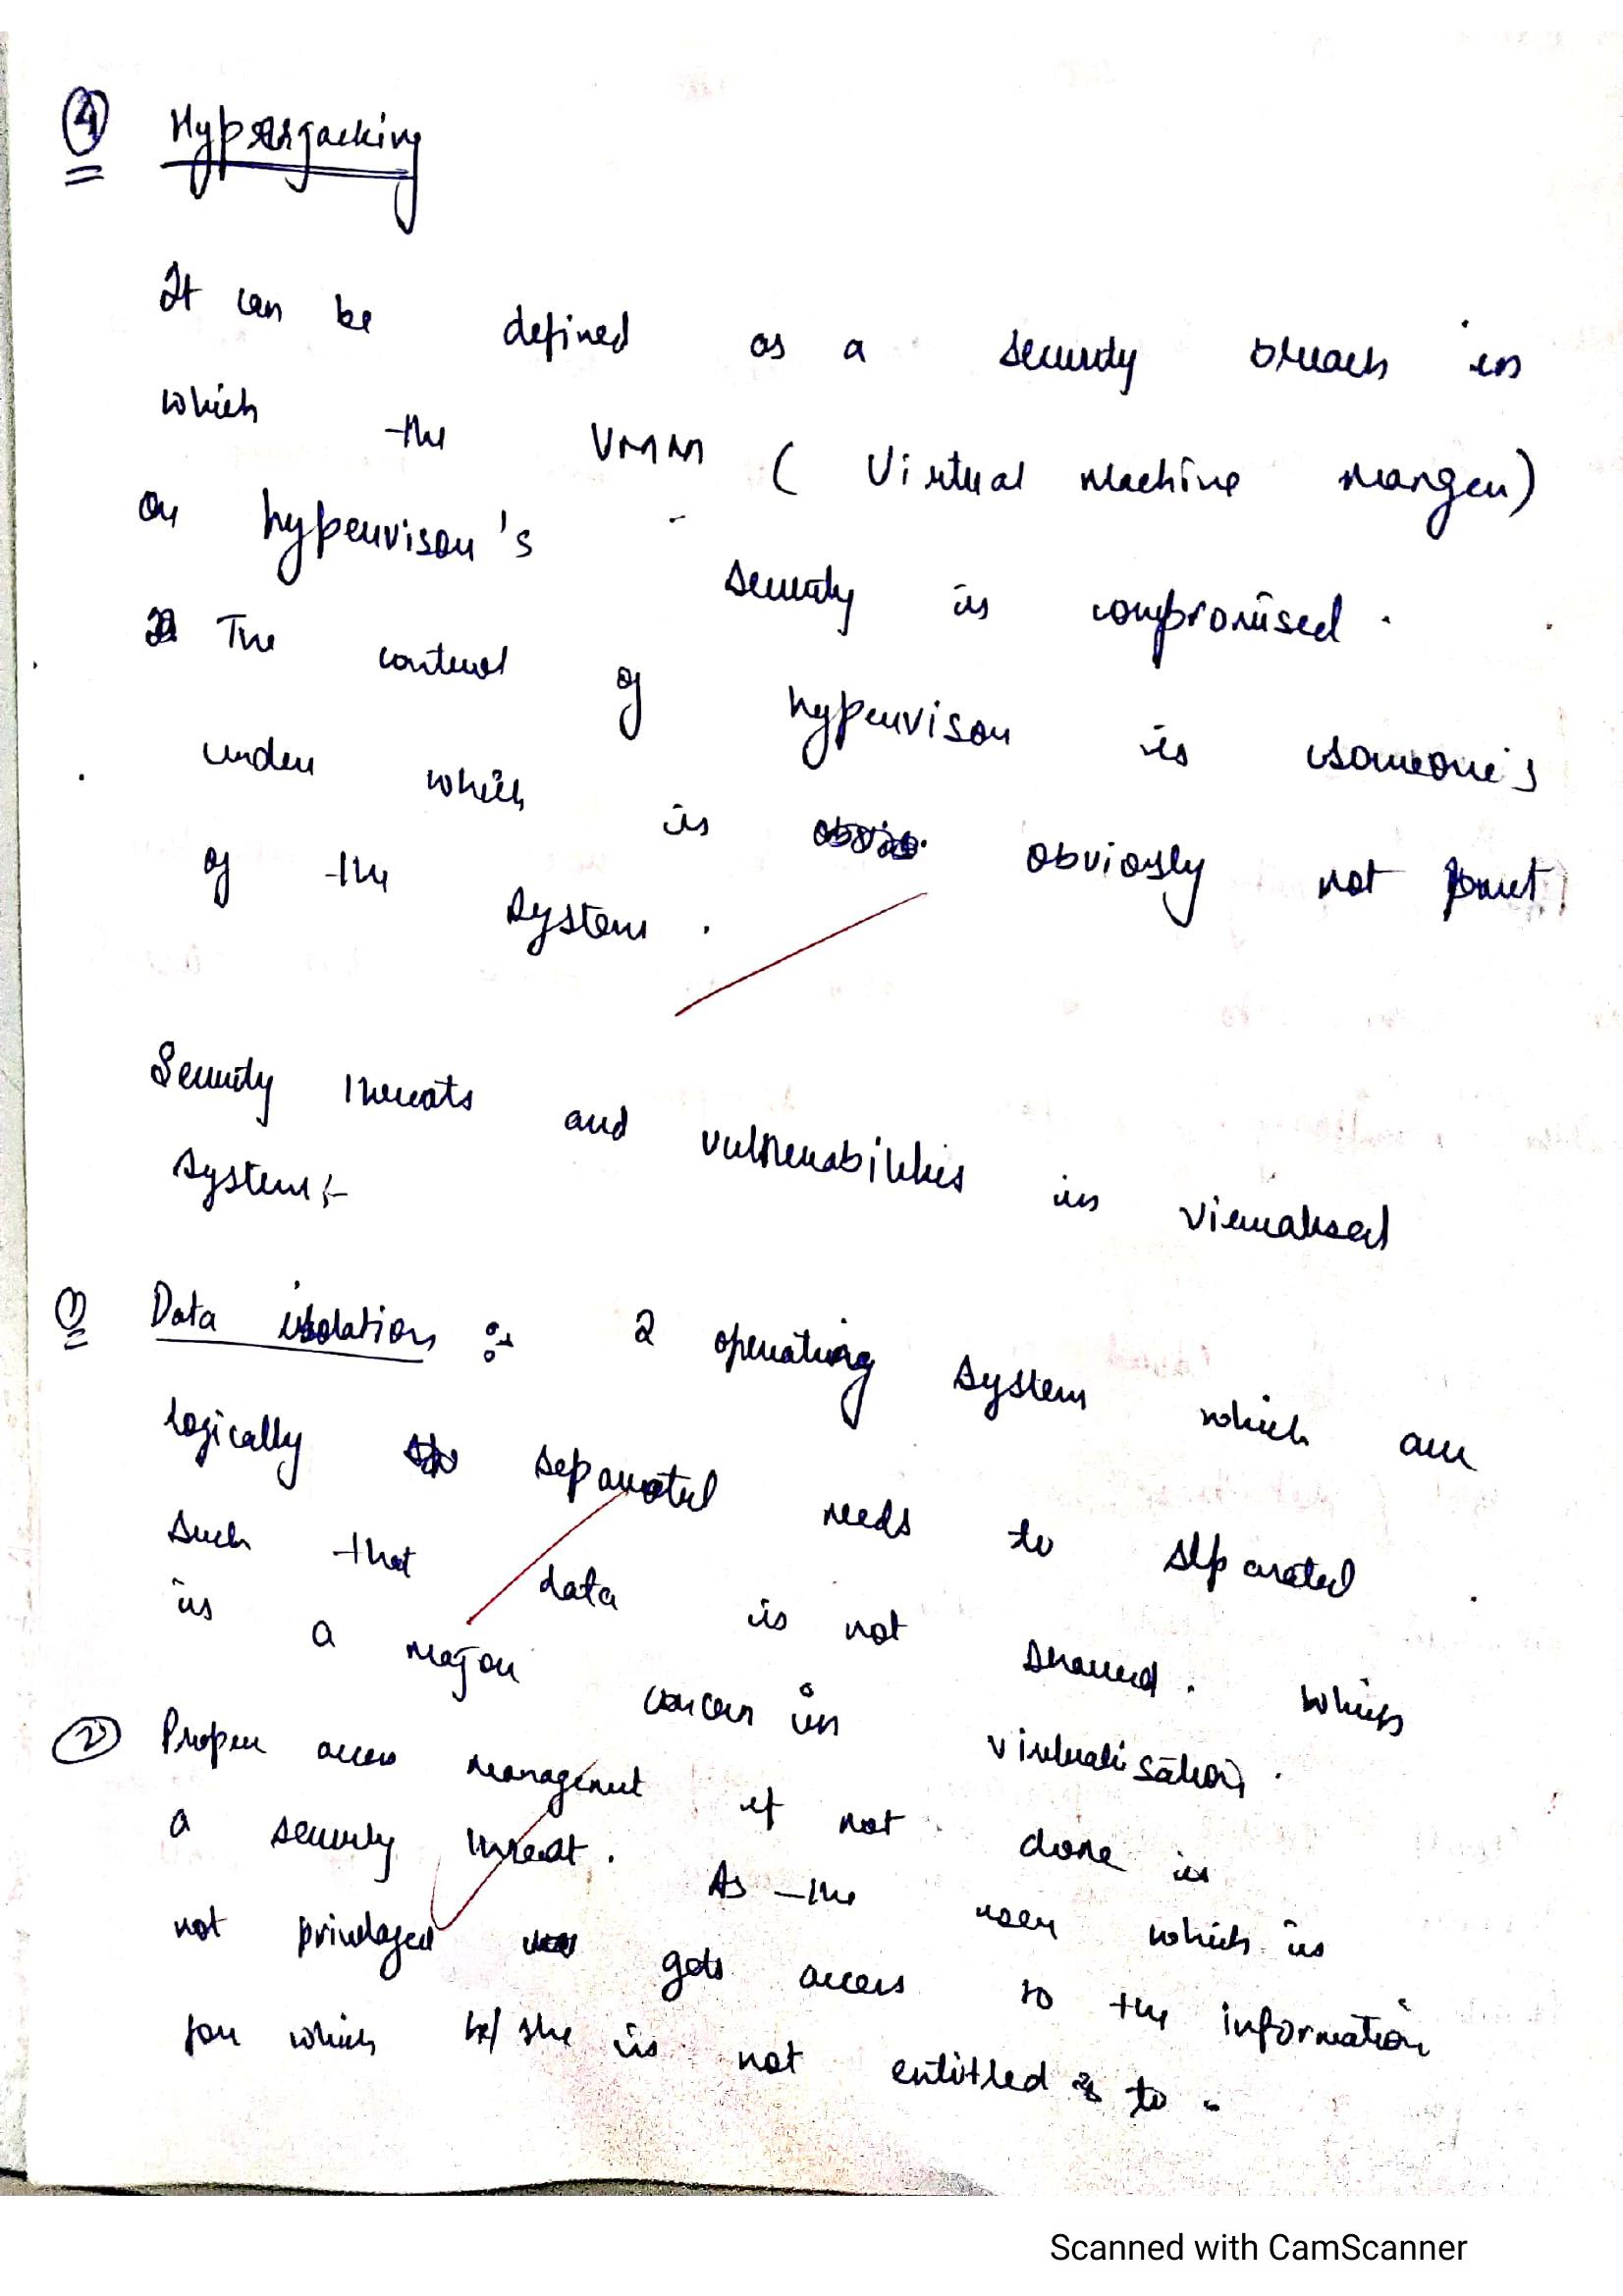 ④ Hyperjacking
It can be defined as a security breach in
which the VMM ( Virtual Machine Manger)
or hypervisor's security is compromised.
The control of hypervisor is someone's
under which is obviosly not part
of the system.
Security threats and vulnerabilities in virtualised
system:-
① Data isolation :- 2 operating system which are
logically separated needs to separated
such that data is not shared. which
is a major concern in virtualisation.
② Proper access management if not done is
a security threat. As the user which is
not privilaged gets access to the information
for which he/she is not entitled to.
Scanned with CamScanner